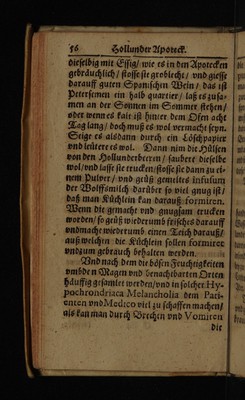 56 Hollunder Apoteck.
dieselbig mit Essig/ wie es in den Apotecken
gebräuchlich/ stosse sie groblecht/ vnd giesse
darauff guten Spanischen Wein/ das ist
Petersemen ein halb quartier/ laß es zusa-
men an der Sonnen im Sommer stehen/
oder wenn es kalt ist hinter dem Ofen acht
Tag lang/ doch muß es wol vermacht seyn.
Seige es alsdann durch ein Löschpapier
vnd leutere es wol. Dann nim die Hülsen
von den Hollunderbeeren/ saubere dieselbe
wol/ vnd lasse sie trucken/ stosse sie dann zu ei-
nem Pulver/ vnd geüß gemeltes Infusum
der Wolffsmilch darüber so viel gnug ist/
daß man Küchlein kan darauß formiren.
Wenn die gemacht vnd gnugsam trucken
worden/ so geüß wiederumb frisches darauff
vnd mache wiederumb einen Teich darauß/
auß welchen die Küchlein sollen formiret
vnd zum gebrauch behalten werden.
Vnd nach dem die bösen Feuchtigkeiten
vmb den Magen vnd benachbarten Orten
häuffig gesamlet werden/ vnd in solcher Hy-
pochrondriaca Melancholia dem Pati-
enten vnd Medico viel zu schaffen machen/
als kan man durch Brechen vnd Vomiren
die